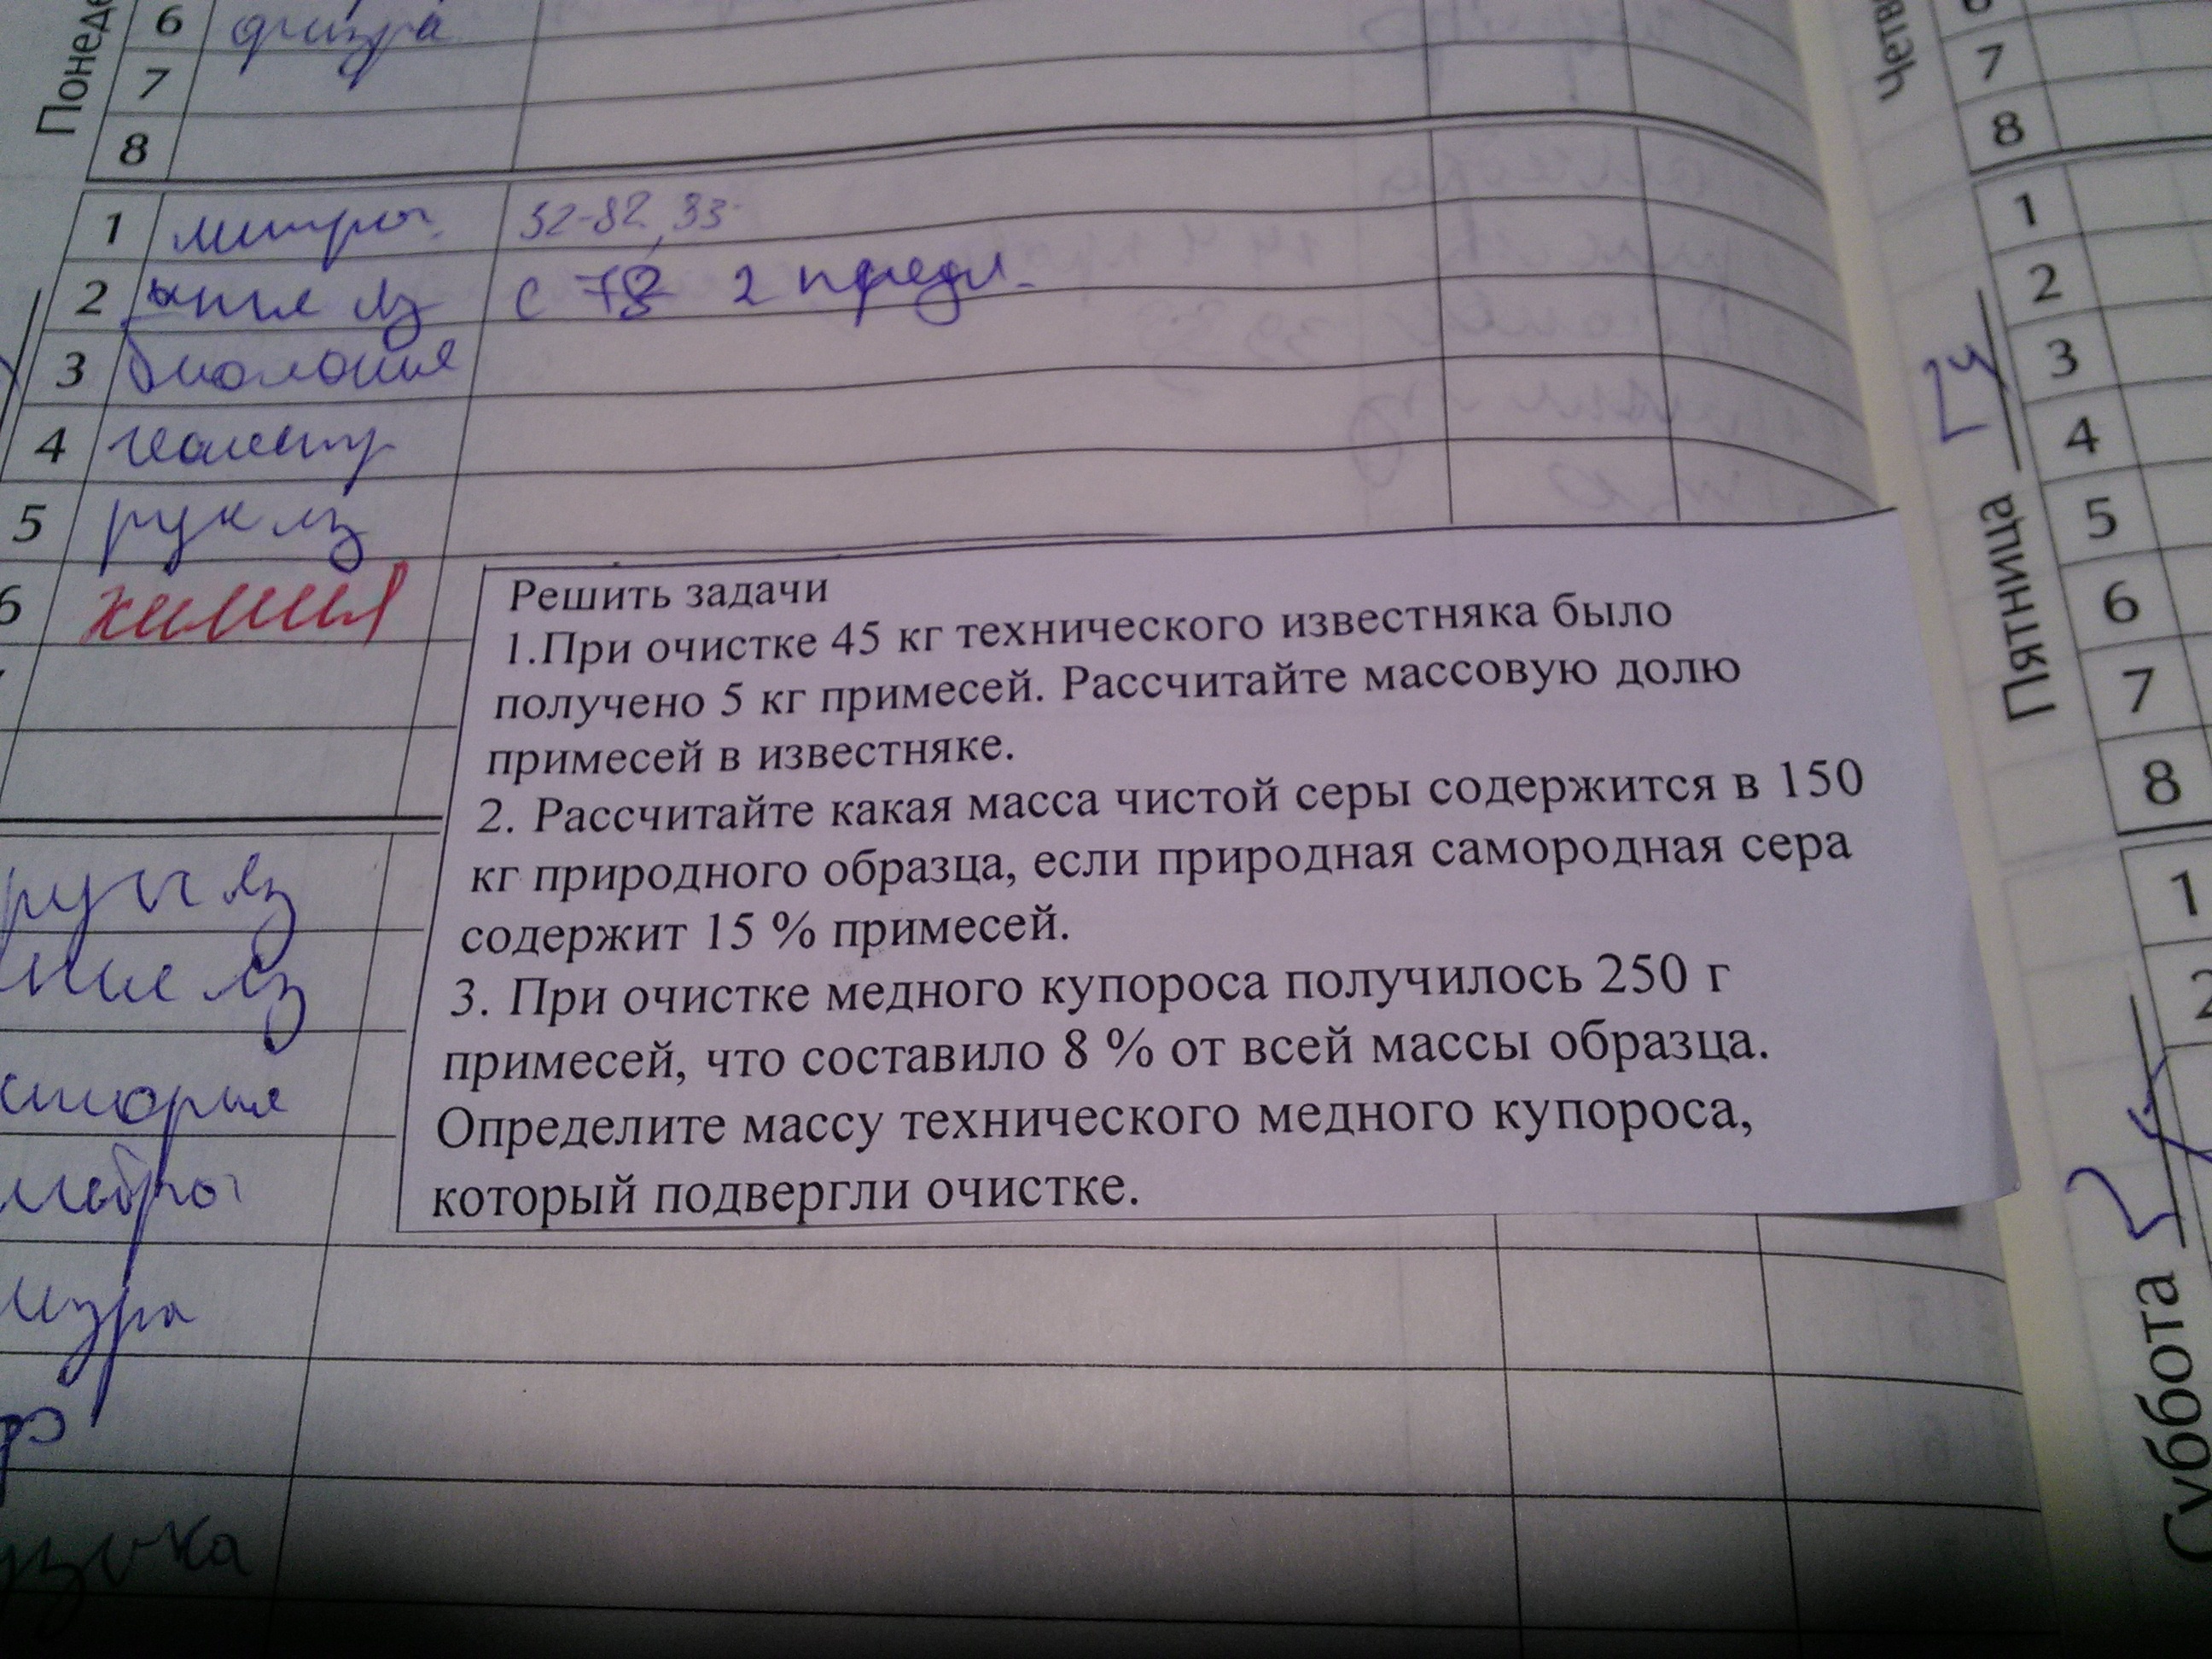 Понед
6 физра
7
8
1 литра 32-82, 33
2 англ яз с 78 2 предл.
3 биология
4 геометр
5 рус яз
6 химия
Решить задачи
1.При очистке 45 кг технического известняка было
получено 5 кг примесей. Рассчитайте массовую долю
примесей в известняке.
2. Рассчитайте какая масса чистой серы содержится в 150
кг природного образца, если природная самородная сера
содержит 15 % примесей.
3. При очистке медного купороса получилось 250 г
примесей, что составило 8 % от всей массы образца.
Определите массу технического медного купороса,
который подвергли очистке.
русс яз
нгл яз
стория
лгебра
изра
узыка
Четв
7
8
24 Пятница
1
2
3
4
5
6
7
8
Суббота
1
2